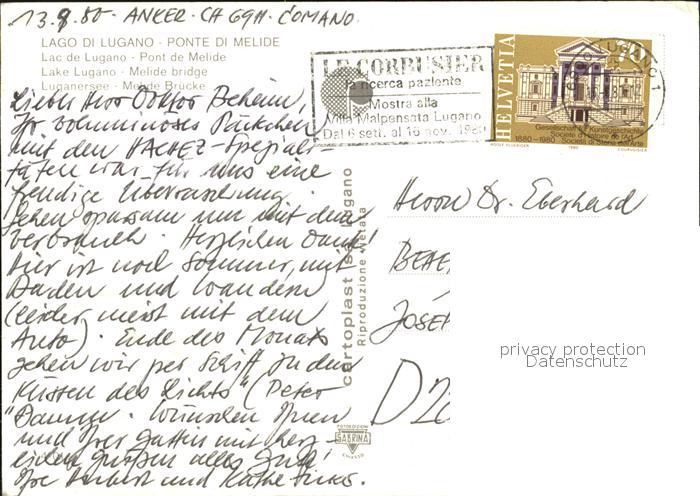 13.9.80 - ANKER - CH 6911 - COMANO.
LAGO DI LUGANO - PONTE DI MELIDE
Lac de Lugano - Pont de Melide
Lake Lugano - Melide bridge
Luganersee - Melide Brücke
LE CORBUSIER
la ricerca paziente
Mostra alla
Villa Malpensata Lugano
Dal 6 sett. al 16 nov. 1980
HELVETIA
70
LUGANO 1
Gesellschaft für Kunstgeschichte
Société d'Histoire de l'Art
1880-1980 Società di Storia dell'Arte
1980
COURVOISIER
Lieber Herr Doktor Beheim,
Ihr voluminöses Päckchen
mit den HACHEZ-Spezial-
täten war für uns eine
freudige Überraschung.
Gehen sparsam um mit dem
Verbrauch. Herzlichen Dank!
Hier ist noch Sommer, mit
Baden und Wandern
(leider meist mit dem
Auto). Ende des Monats
gehen wir per Schiff zu den
"Küsten des Lichts" (Peter
Bamm. Wünschen Ihnen
und Ihrer Gattin mit herz-
lichen Grüßen alles Gute!
Ihre Herbert und Käthe
cartoplast sa lugano
Riproduzione vietata
FOTOEDIZIONI
SABRINA
CHIASSO
Herrn Dr. Eberhard
BEHE
JOSEF
D 28
privacy protection
Datenschutz